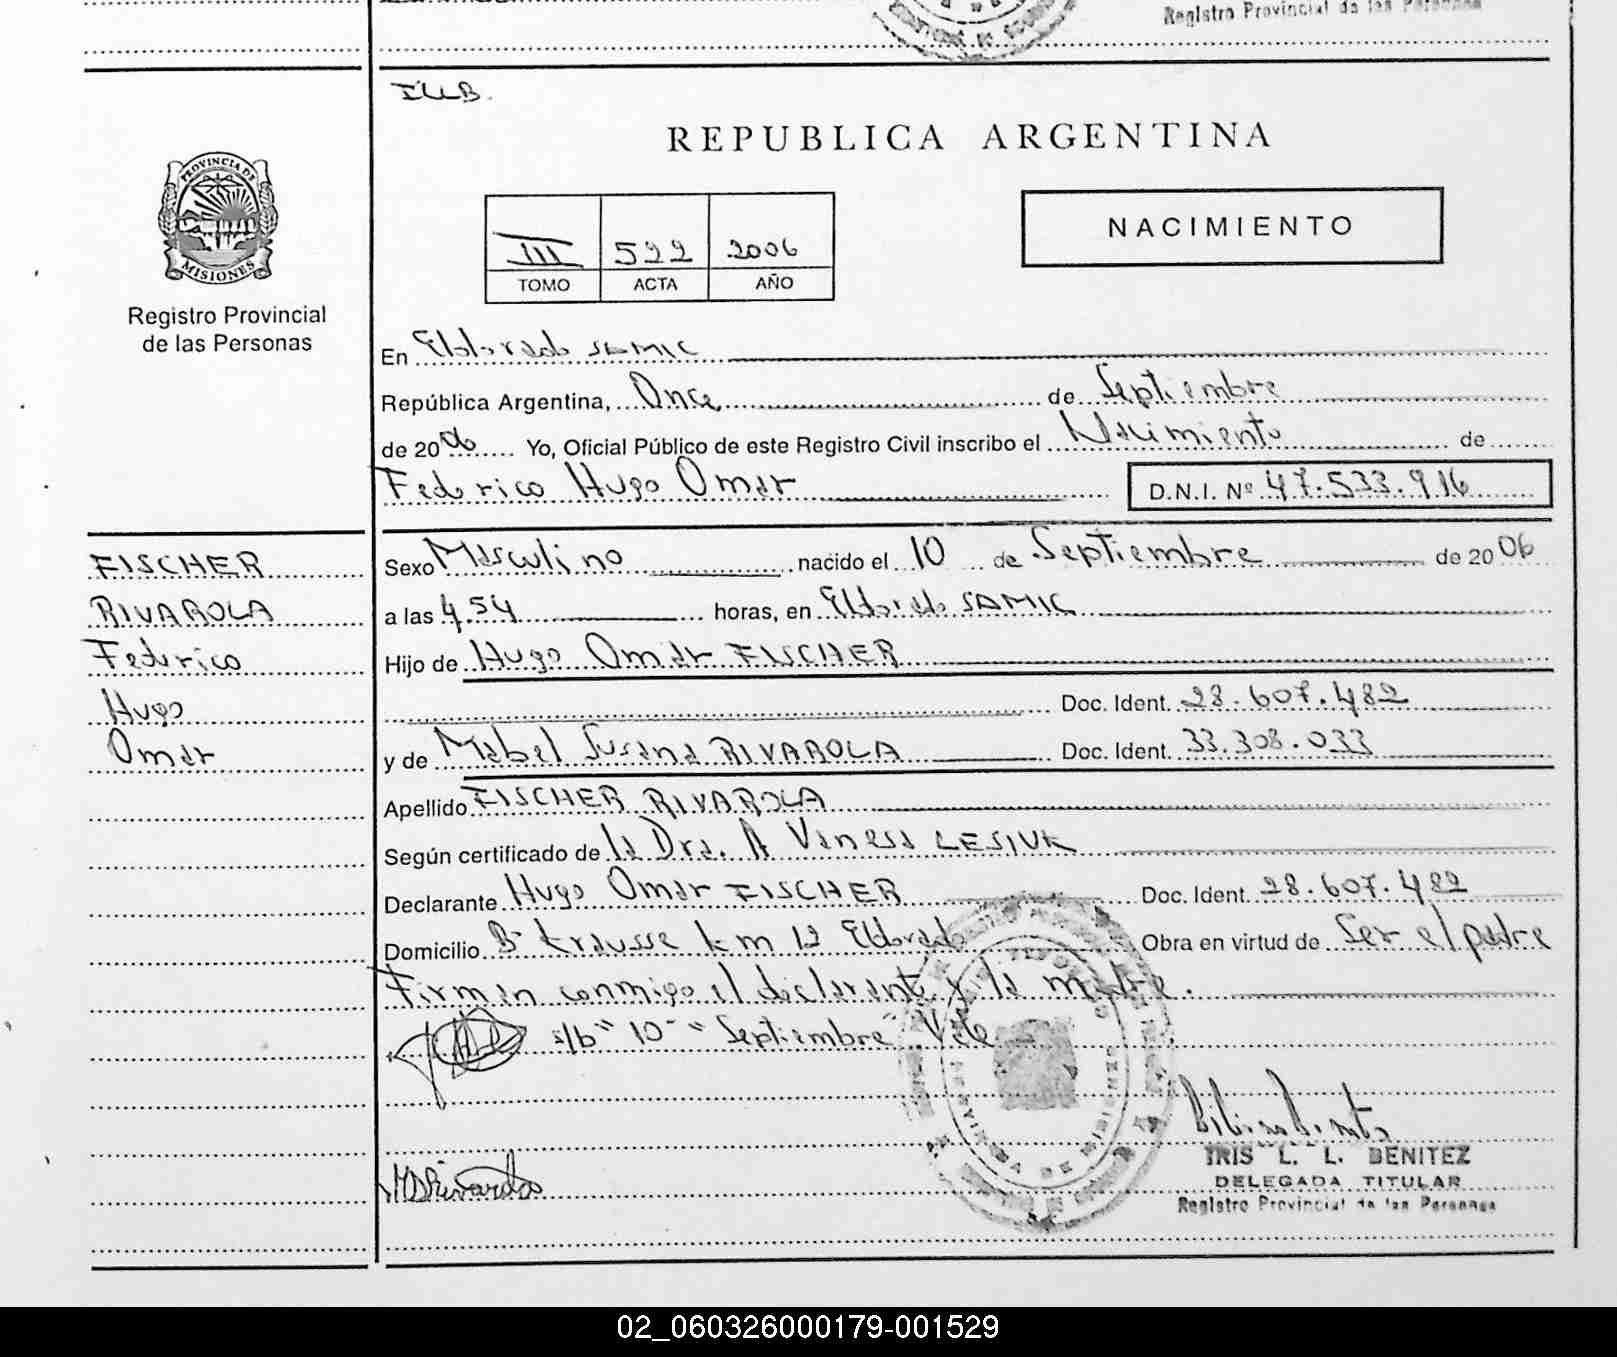 Registro Provincial de las Personas
ILLB.
REPUBLICA ARGENTINA
PROVINCIA DE
MISIONES
Registro Provincial
de las Personas
III 522 2006
TOMO ACTA AÑO
NACIMIENTO
En Eldorado SAMIC
República Argentina, Once de Septiembre
de 2006 Yo, Oficial Público de este Registro Civil inscribo el Nacimiento de
Federico Hugo Omar D.N.I. Nº 47.533.916
FISCHER
RIVAROLA
Federico
Hugo
Omar
Sexo Masculino nacido el 10 de Septiembre de 2006
a las 4.54 horas, en Eldorado SAMIC
Hijo de Hugo Omar FISCHER
Doc. Ident. 28.607.482
y de Mabel Susana RIVAROLA Doc. Ident. 33.308.033
Apellido FISCHER RIVAROLA
Según certificado de la Dra. A Vanesa LESIUK
Declarante Hugo Omar FISCHER Doc. Ident. 28.607.482
Domicilio Bº Krausse km 12 Eldorado Obra en virtud de Ser el padre
Firman conmigo el declarante y la madre.
s/b "10" "Septiembre" Vale
IRIS L. L. BENITEZ
DELEGADA TITULAR
Registro Provincial de las Personas
02_060326000179-001529